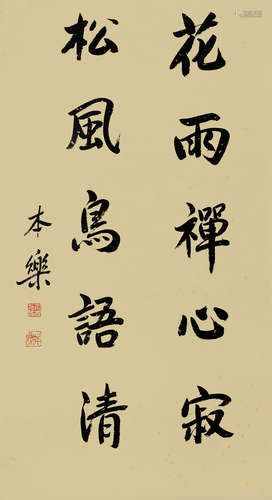 花雨禪心寂
松風鳥語清
本樂